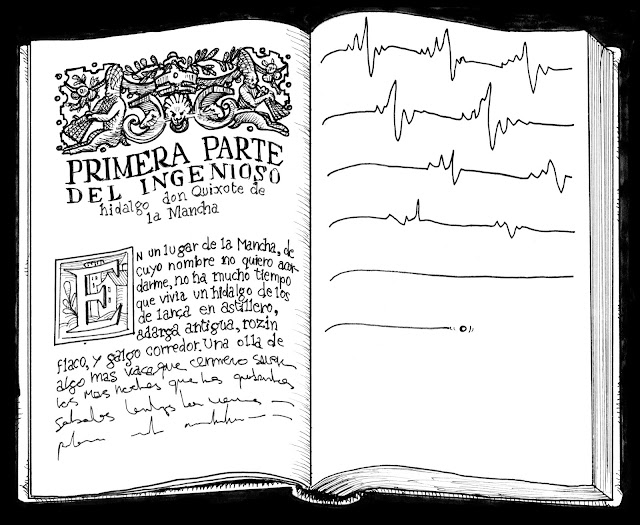 PRIMERA PARTE
DEL INGENIOSO
hidalgo don Quixote de
la Mancha
EN un lugar de la Mancha, de
cuyo nombre no quiero acor
darme, no ha mucho tiempo
que vivia un hidalgo de los
de lança en astillero,
adarga antigua, rozin
flaco, y galgo corredor. Una olla de
algo mas vaca que carnero
las mas noches